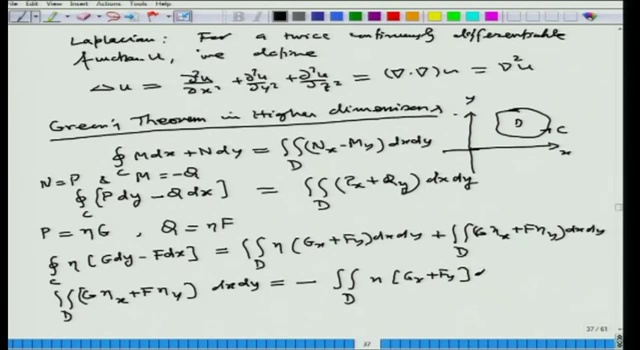 File Edit View Insert Actions Tools Help
Laplacian: For a twice continuously differentiable
function u, we define
Δu = ∂²u/∂x² + ∂²u/∂y² + ∂²u/∂z² = (∇·∇)u = ∇²u
Green's Theorem in Higher dimensions
∮_C Mdx+Ndy = ∬_D (N_x - M_y) dxdy
y
D
C
x
N=P & M=-Q
∮_C [Pdy - Qdx] = ∬_D (P_x + Q_y) dxdy
P = ηG , Q = ηF
∮_C η[Gdy - Fdx] = ∬_D η(G_x+F_y)dxdy + ∬_D (Gη_x + Fη_y)dxdy
∬_D [Gη_x + Fη_y] dxdy = - ∬_D η[G_x+F_y]
37 / 61
37